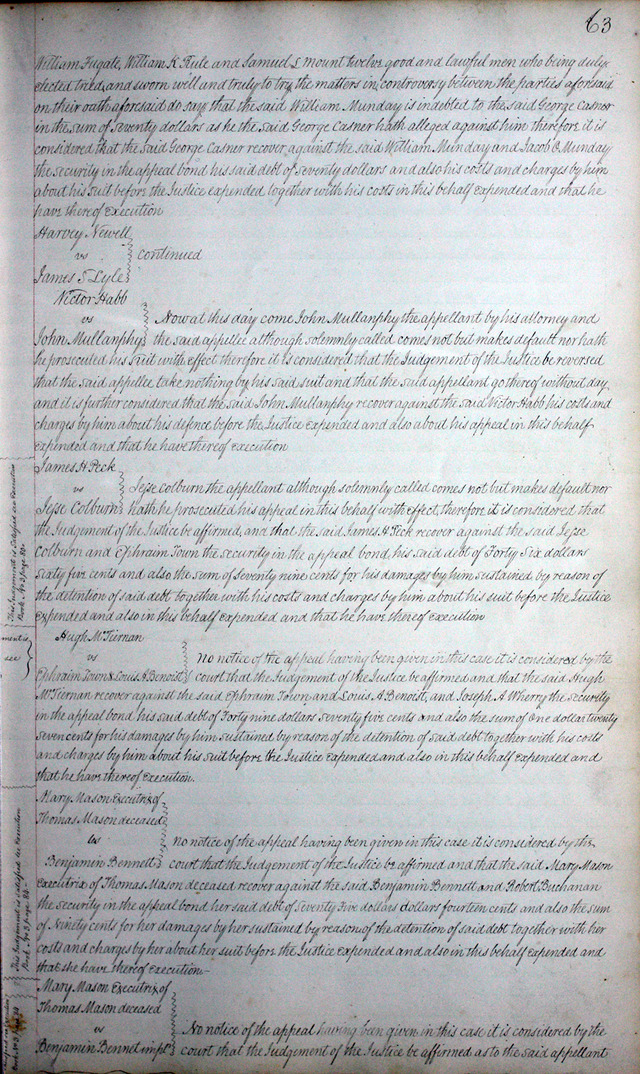 63
William Fugate, William K Rule and Samuel S mount twelve good and lawful men who being duly
elected tried and sworn well and truly to try the matters in controversy between the parties aforesaid
on their oath aforesaid do say that the said William Munday is indebted to the said George Casner
in the sum of seventy dollars as he the said George Casner hath alleged against him therefore it is
considered that the said George Casner recover against the said William Munday and Jacob C Munday
the security in the appeal bond his said debt of seventy dollars and also his costs and charges by him
about his suit before the Justice expended together with his costs in this behalf expended and that he
have thereof execution
Harvey Newell
vs continued
James S Lyle
Victor Habb
vs Now at this day come John Mullanphy the appellant by his attorney and
John Mullanphy the said appellee although solemnly called comes not but makes default nor hath
he prosecuted his suit with effect therefore it is considered that the Judgement of the Justice be reversed
that the said appellee take nothing by his said suit and that the said appellant go thereof without day
and it is further considered that the said John Mullanphy recover against the said Victor Habb his costs and
charges by him about his defence before the Justice Expended and also about his appeal in this behalf
expended and that he have thereof execution
James H Peck
vs Jesse Colburn the appellant although solemnly called comes not but makes default nor
Jesse Colburn hath he prosecuted his appeal in this behalf with effect, therefore it is considered that
the Judgement of the Justice be affirmed, and that the said James H Peck recover against the said Jesse
Colburn and Ephraim Town the security in the appeal bond, his said debt of Forty Six dollars
sixty five cents and also the sum of seventy nine cents for his damages by him sustained by reason of
the detention of said debt together with his costs and charges by him about his suit before the Justice
Expended and also in this behalf expended and that he have thereof Execution
This Judgement is Satisfied see Execution
Book No 3 page
Hugh McTiernan
vs No notice of the appeal having been given in this case it is considered by the
Ephraim Town & Louis A Benoist court that the Judgement of the Justice be affirmed and that the said Hugh
McTiernan recover against the said Ephraim Town and Louis A Benoist, and Joseph A Wherry the security
in the appeal bond, his said debt of Forty nine dollars Seventy five cents and also the sum of One dollar twenty
seven cents for his damages by him sustained by reason of the detention of said debt together with his costs
and charges by him about his suit before the Justice Expended and also in this behalf Expended and
that he have thereof Execution.
see
Mary Mason Executrix of
Thomas Mason deceased
vs no notice of the appeal having been given in this case it is considered by the
Benjamin Bennett court that the Judgement of the Justice be affirmed and that the said Mary Mason
Executrix of Thomas Mason deceased recover against the said Benjamin Bennett and Robert Buchanan
the security in the appeal bond her said debt of Seventy Five dollars dollars fourteen cents and also the sum
of Ninety cents for her damages by her sustained by reason of the detention of said debt together with her
costs and charges by her about her suit before the Justice expended and also in this behalf expended and
that she have thereof execution
This Judgement is satisfied see Execution
Book No 3 page
Mary Mason Executrix of
Thomas Mason deceased
vs No notice of the appeal having been given in this case it is considered by the
Benjamin Bennet impl court that the Judgement of the Justice be affirmed as to the said appellant